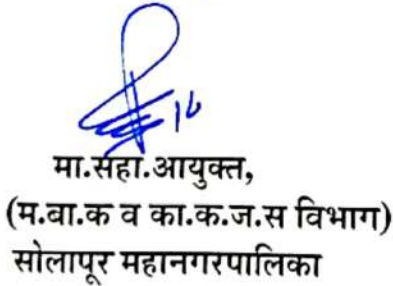 मा.सहा.आयुक्त,
(म.बा.क व का.क.ज.स विभाग)
सोलापूर महानगरपालिका